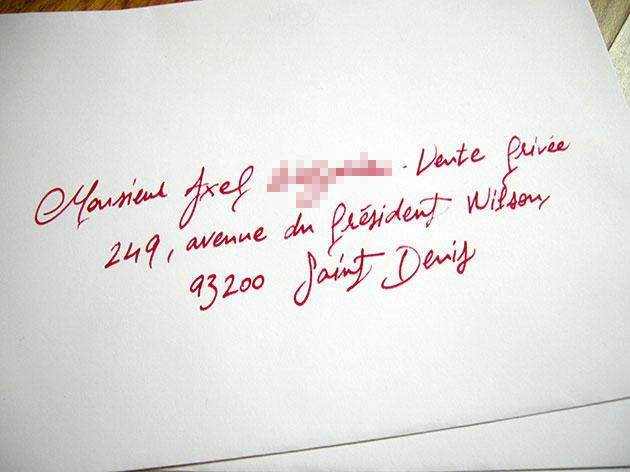 Monsieur Axel - Vente privée
249, avenue du Président Wilson,
93200 Saint Denis